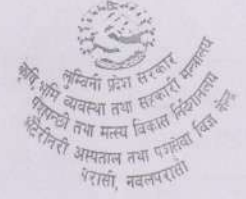 लुम्बिनी प्रदेश सरकार
कृषि, भूमि व्यवस्था तथा सहकारी मन्त्रालय
पशुपन्छी तथा मत्स्य विकास निर्देशनालय
भेटेरिनरी अस्पताल तथा पशुसेवा विज्ञ केन्द्र
परासी, नवलपरासी